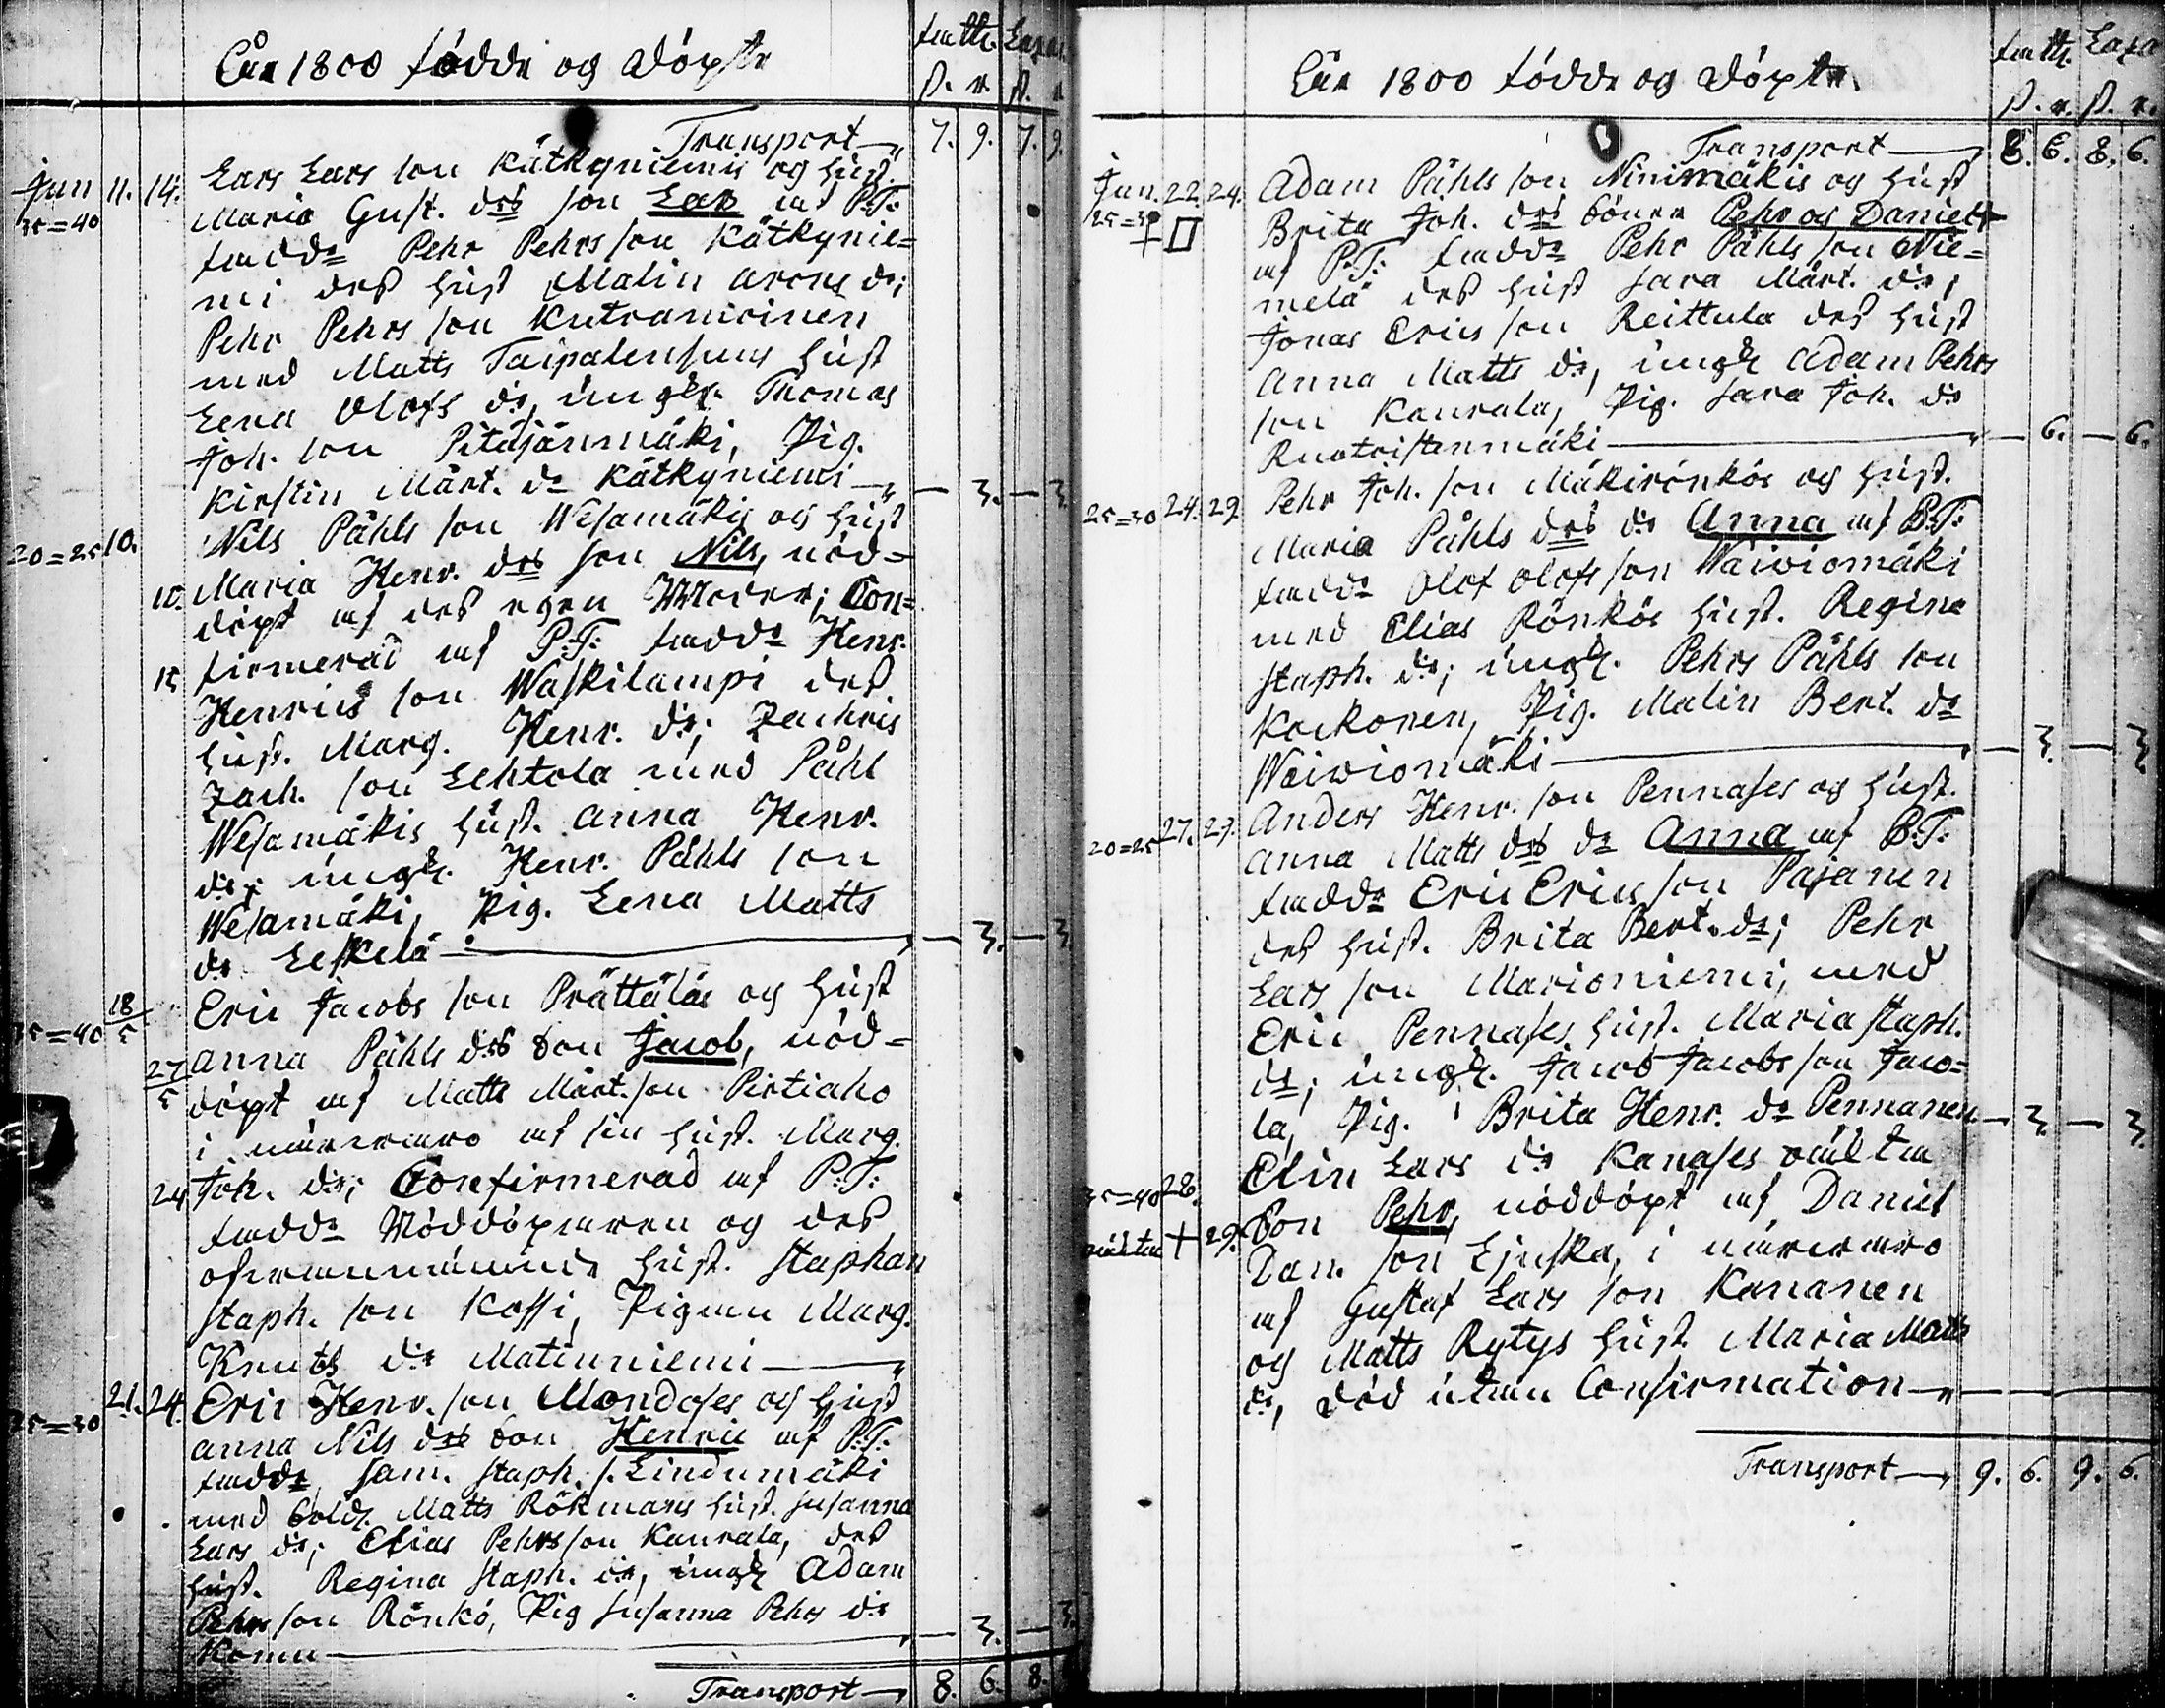 Åhr 1800 födde og döpte
fatti. Laza
ß. r. ß. r.
Transport 7. 9. 7. 9.
Jun 11. 14. Lars Lars son Kätkyniemis og hust.
35=40 Maria Gust. drs son Lars af P.T.
fadd. Pehr Pehrs son Kätkynie=
mi des hust Malin Arons dr;
Pehr Pehrs son Kutramoinen
med Matts Taipalensuus hust
Lena Olofs dr, ungk. Thomas
Joh. son Pitäjänmäki, Pig.
Kirstin Märt. dr Kätkyniemi — 3. — 3.
20=25 10. Nils Påhls son Wesamäkis og hust
Maria Henr. drs son Nils, nöd=
10. döpt af des egen Moder; Con=
firmerad af P.T. fadd. Henr.
15 Henrics son Waskilampi des
hust. Marg. Henr. dr; Zachris
Zach. son Lehtola med Påhl
Wesamäkis hust. Anna Henr.
dr; ungk. Henr. Påhls son
Wesamäki, Pig. Lena Matts
dr Leskelä — 3. — 3.
18/5 Eric Jacobs son Prättäläs og hust
35=40 Anna Påhls drs son Jacob, nöd=
27/5 döpt af Matts Märt. son Pirtiaho
i närwaro af sin hust. Marg.
24 Joh. dr; Confirmerad af P.T.
fadd. Nöddöparen og des
ofwannämnde hust. Staphan
Staph. son Kossi, Pigan Marg.
Knuts dr Matinniemi —
21. 24. Eric Henr. son Mondases og hust
25=30 Anna Nils drs son Henric af P.T.
fadd. Sam. Staph. s. Lindumäki
med Sold. Matts Rökmans hust. Susanna
Lars dr; Elias Pehrs son Kaurala, des
hust. Regina Staph. dr, ungk Adam
Pehrs son Rönkö, Pig Susanna Pehrs dr
Komu — 3. — 3.
Transport 8. 6. 8.
Åhr 1800 födde og döpte.
fatti. Laza
ß. r. ß. r.
Transport 8. 6. 8. 6.
Jun. 22. 24. Adam Påhls son Ninimäkis og hust
25=30 Brita Joh. drs söner Pehr og Daniel
af P.T. fadd. Pehr Påhls son Nie=
melä des hust Sara Märt. dr;
Jonas Erics son Reittula des hust
Anna Matts dr, ungk Adam Pehrs
son Kaurala, Pig. Sara Joh. dr
Ruotoistenmäki — 6. — 6.
25=30 24. 29. Pehr Joh. son Mäkirönkös og hust.
Maria Påhls drs dr Anna af P.T.
fadd. Olof Olofs son Waiwiomäki
med Elias Rönkös hust. Regina
Staph. dr; ungk. Pehrs Påhls son
Kockonen, Pig. Malin Bert. dr
Waiwiomäki — 3. — 3.
27. 29. Anders Henr. son Pennases og hust.
20=25 Anna Matts drs dr Anna af P.T.
fadd. Eric Erics son Pajanen
des hust. Brita Bert. dr; Pehr
Lars son Marioniemi, med
Eric Pennases hust. Maria Staph.
dr; ungk. Jacob Jacobs son Jaco=
la, Pig. Brita Henr. dr Pennanen — 3. — 3.
35=40 28. Elin Lars dr Kanases oäkta
oäkta + 29. Son Pehr, nöddöpt af Daniel
Dan. son Ljuska, i närwaro
af Gustaf Lars son Kananen
og Matts Rytys hust Maria Matts
dr, död utan Confirmation —
Transport 9. 6. 9. 6.